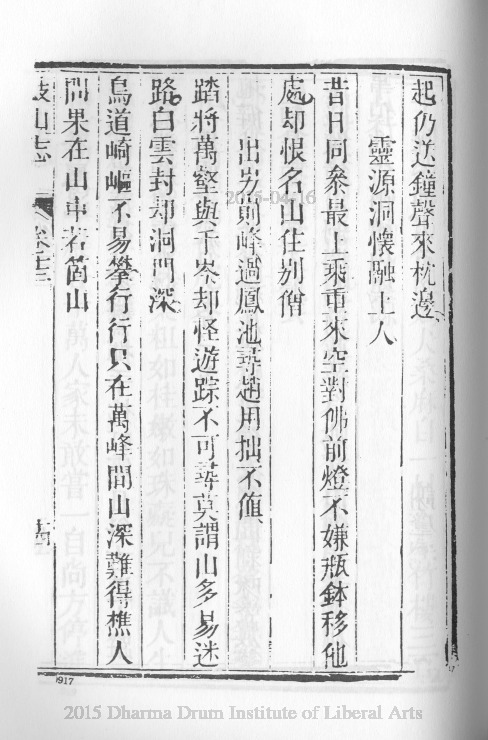 起仍送鐘聲來枕邊
靈源洞懷融上人
昔日同叅最上乘重來空對佛前燈不嫌瓶鉢移他
處却恨名山住別僧
出岃崱峰過鳳池尋趙用拙不值
踏將萬壑與千岑却怪遊踪不可尋莫謂山多易迷
路白雲封却洞門深
鳥道崎嶇不易攀行行只在萬峰間山深難得樵人
問果在山中若箇山
鼓山志
卷十三
2015-04-16
0917
2015 Dharma Drum Institute of Liberal Arts